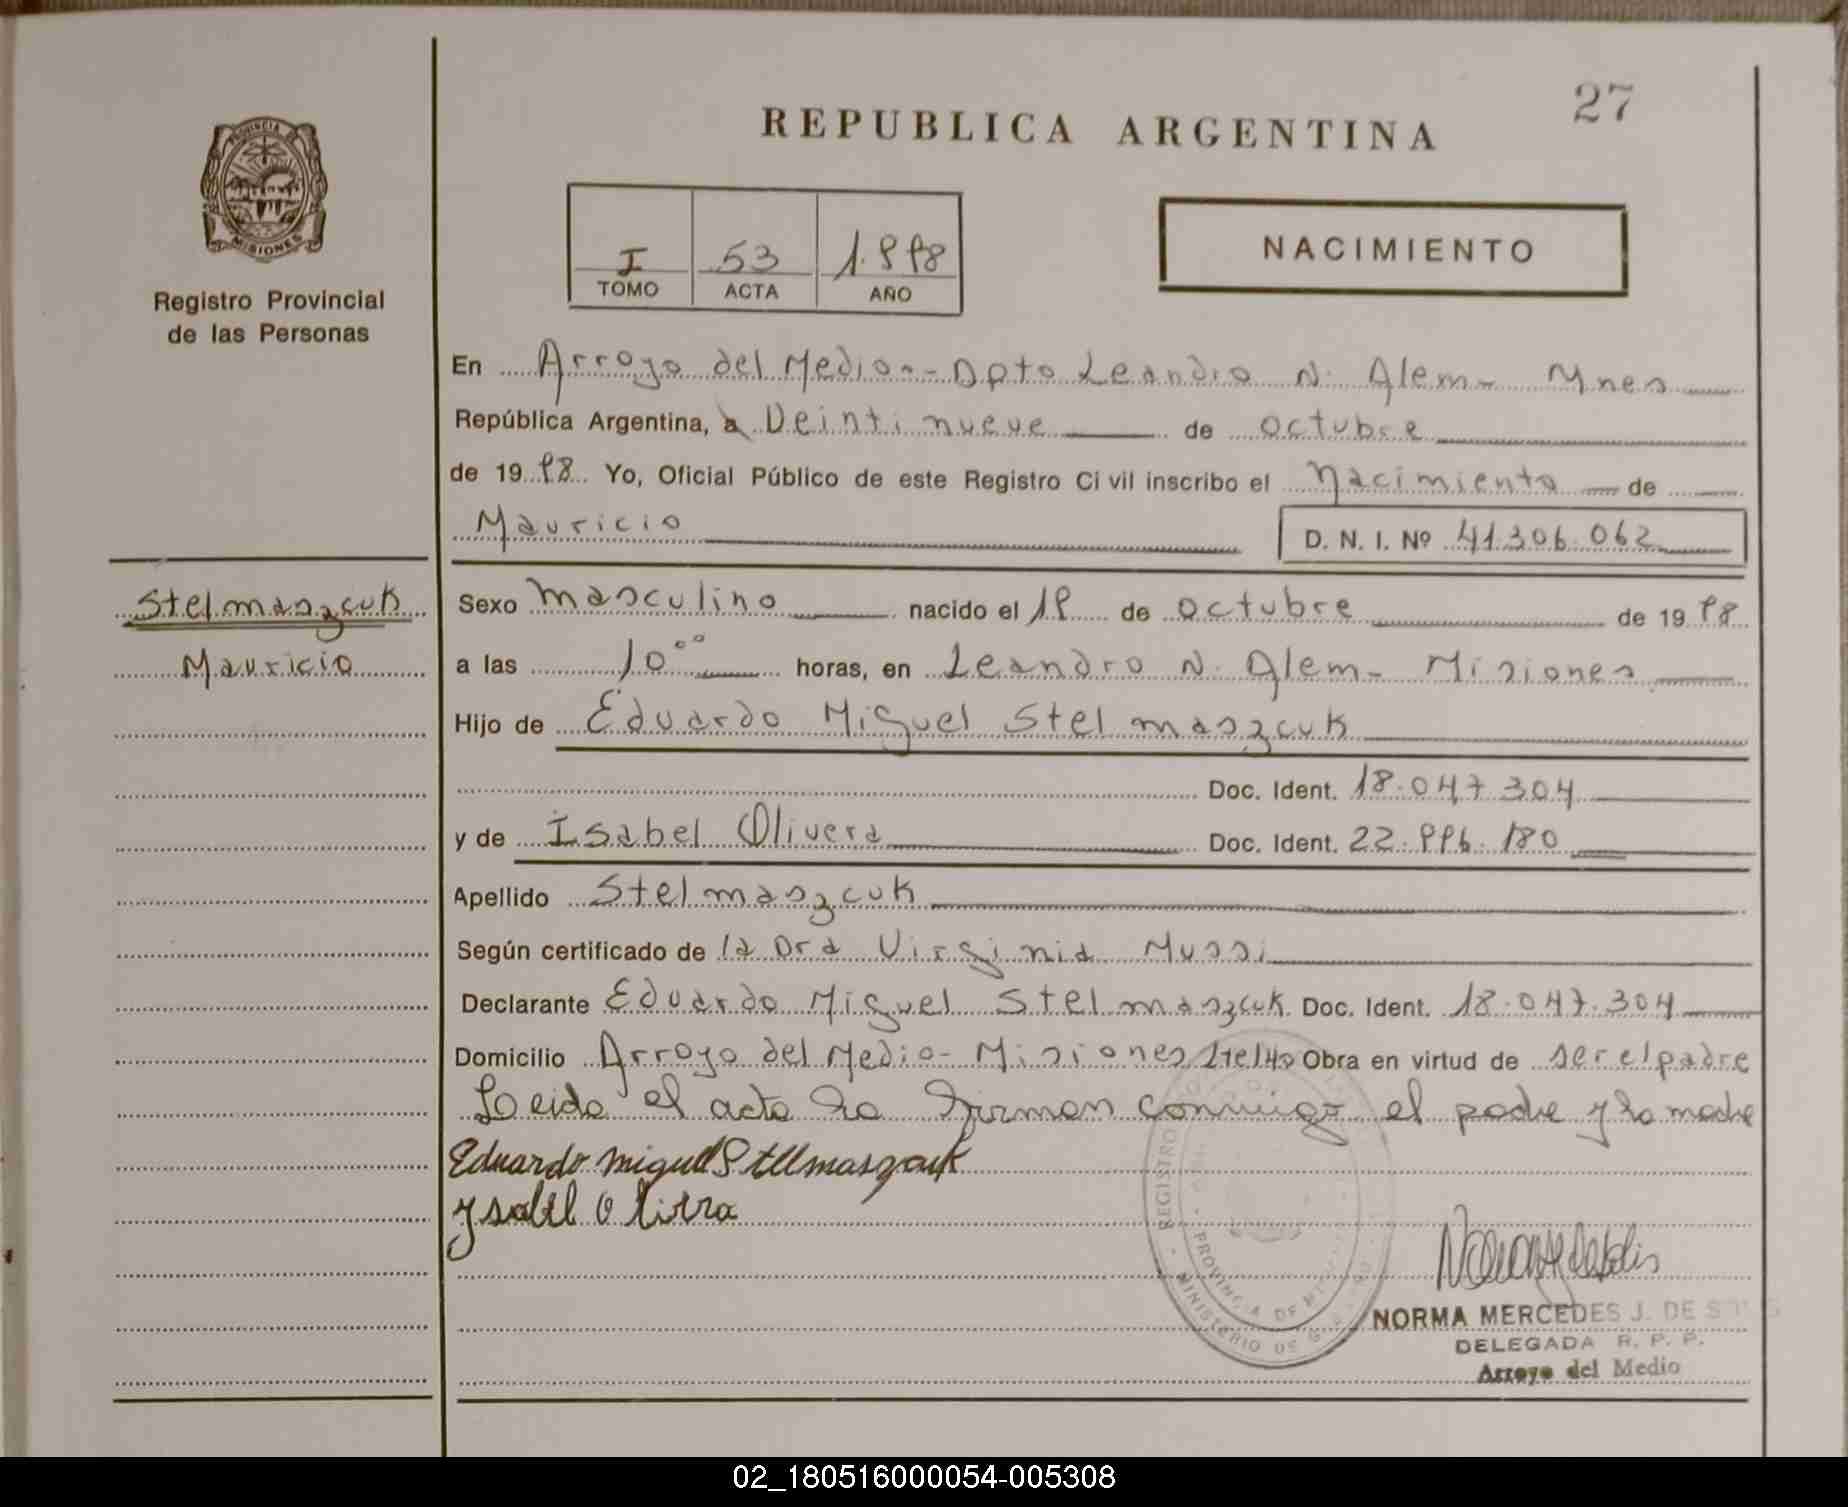 27
REPUBLICA ARGENTINA
PROVINCIA DE
MISIONES
Registro Provincial
de las Personas
I 53 1.998
TOMO ACTA AÑO
NACIMIENTO
En Arroyo del Medio.- Dpto Leandro N. Alem- Mnes
República Argentina, a Veintinueve de octubre
de 1998 Yo, Oficial Público de este Registro Civil inscribo el Nacimiento de
Mauricio
D. N. I. Nº 41.306.062
Stelmaszcuk
Mauricio
Sexo masculino nacido el 19 de octubre de 1998
a las 10°° horas, en Leandro N. Alem- Misiones
Hijo de Eduardo Miguel Stelmaszcuk
Doc. Ident. 18.047.304
y de Isabel Olivera Doc. Ident. 22.996.180
Apellido Stelmaszcuk
Según certificado de la Dra Virginia Mussi
Declarante Eduardo Miguel Stelmaszcuk Doc. Ident. 18.047.304
Domicilio Arroyo del Medio- Misiones Obra en virtud de ser el padre
Leida el acta la firman conmigo el padre y la madre
Eduardo miguel Stelmaszcuk
Ysabel
REGISTRO
PROVINCIA DE
MINISTERIO DE
NORMA MERCEDES J. DE
DELEGADA R. P. P.
Arroyo del Medio
02_180516000054-005308